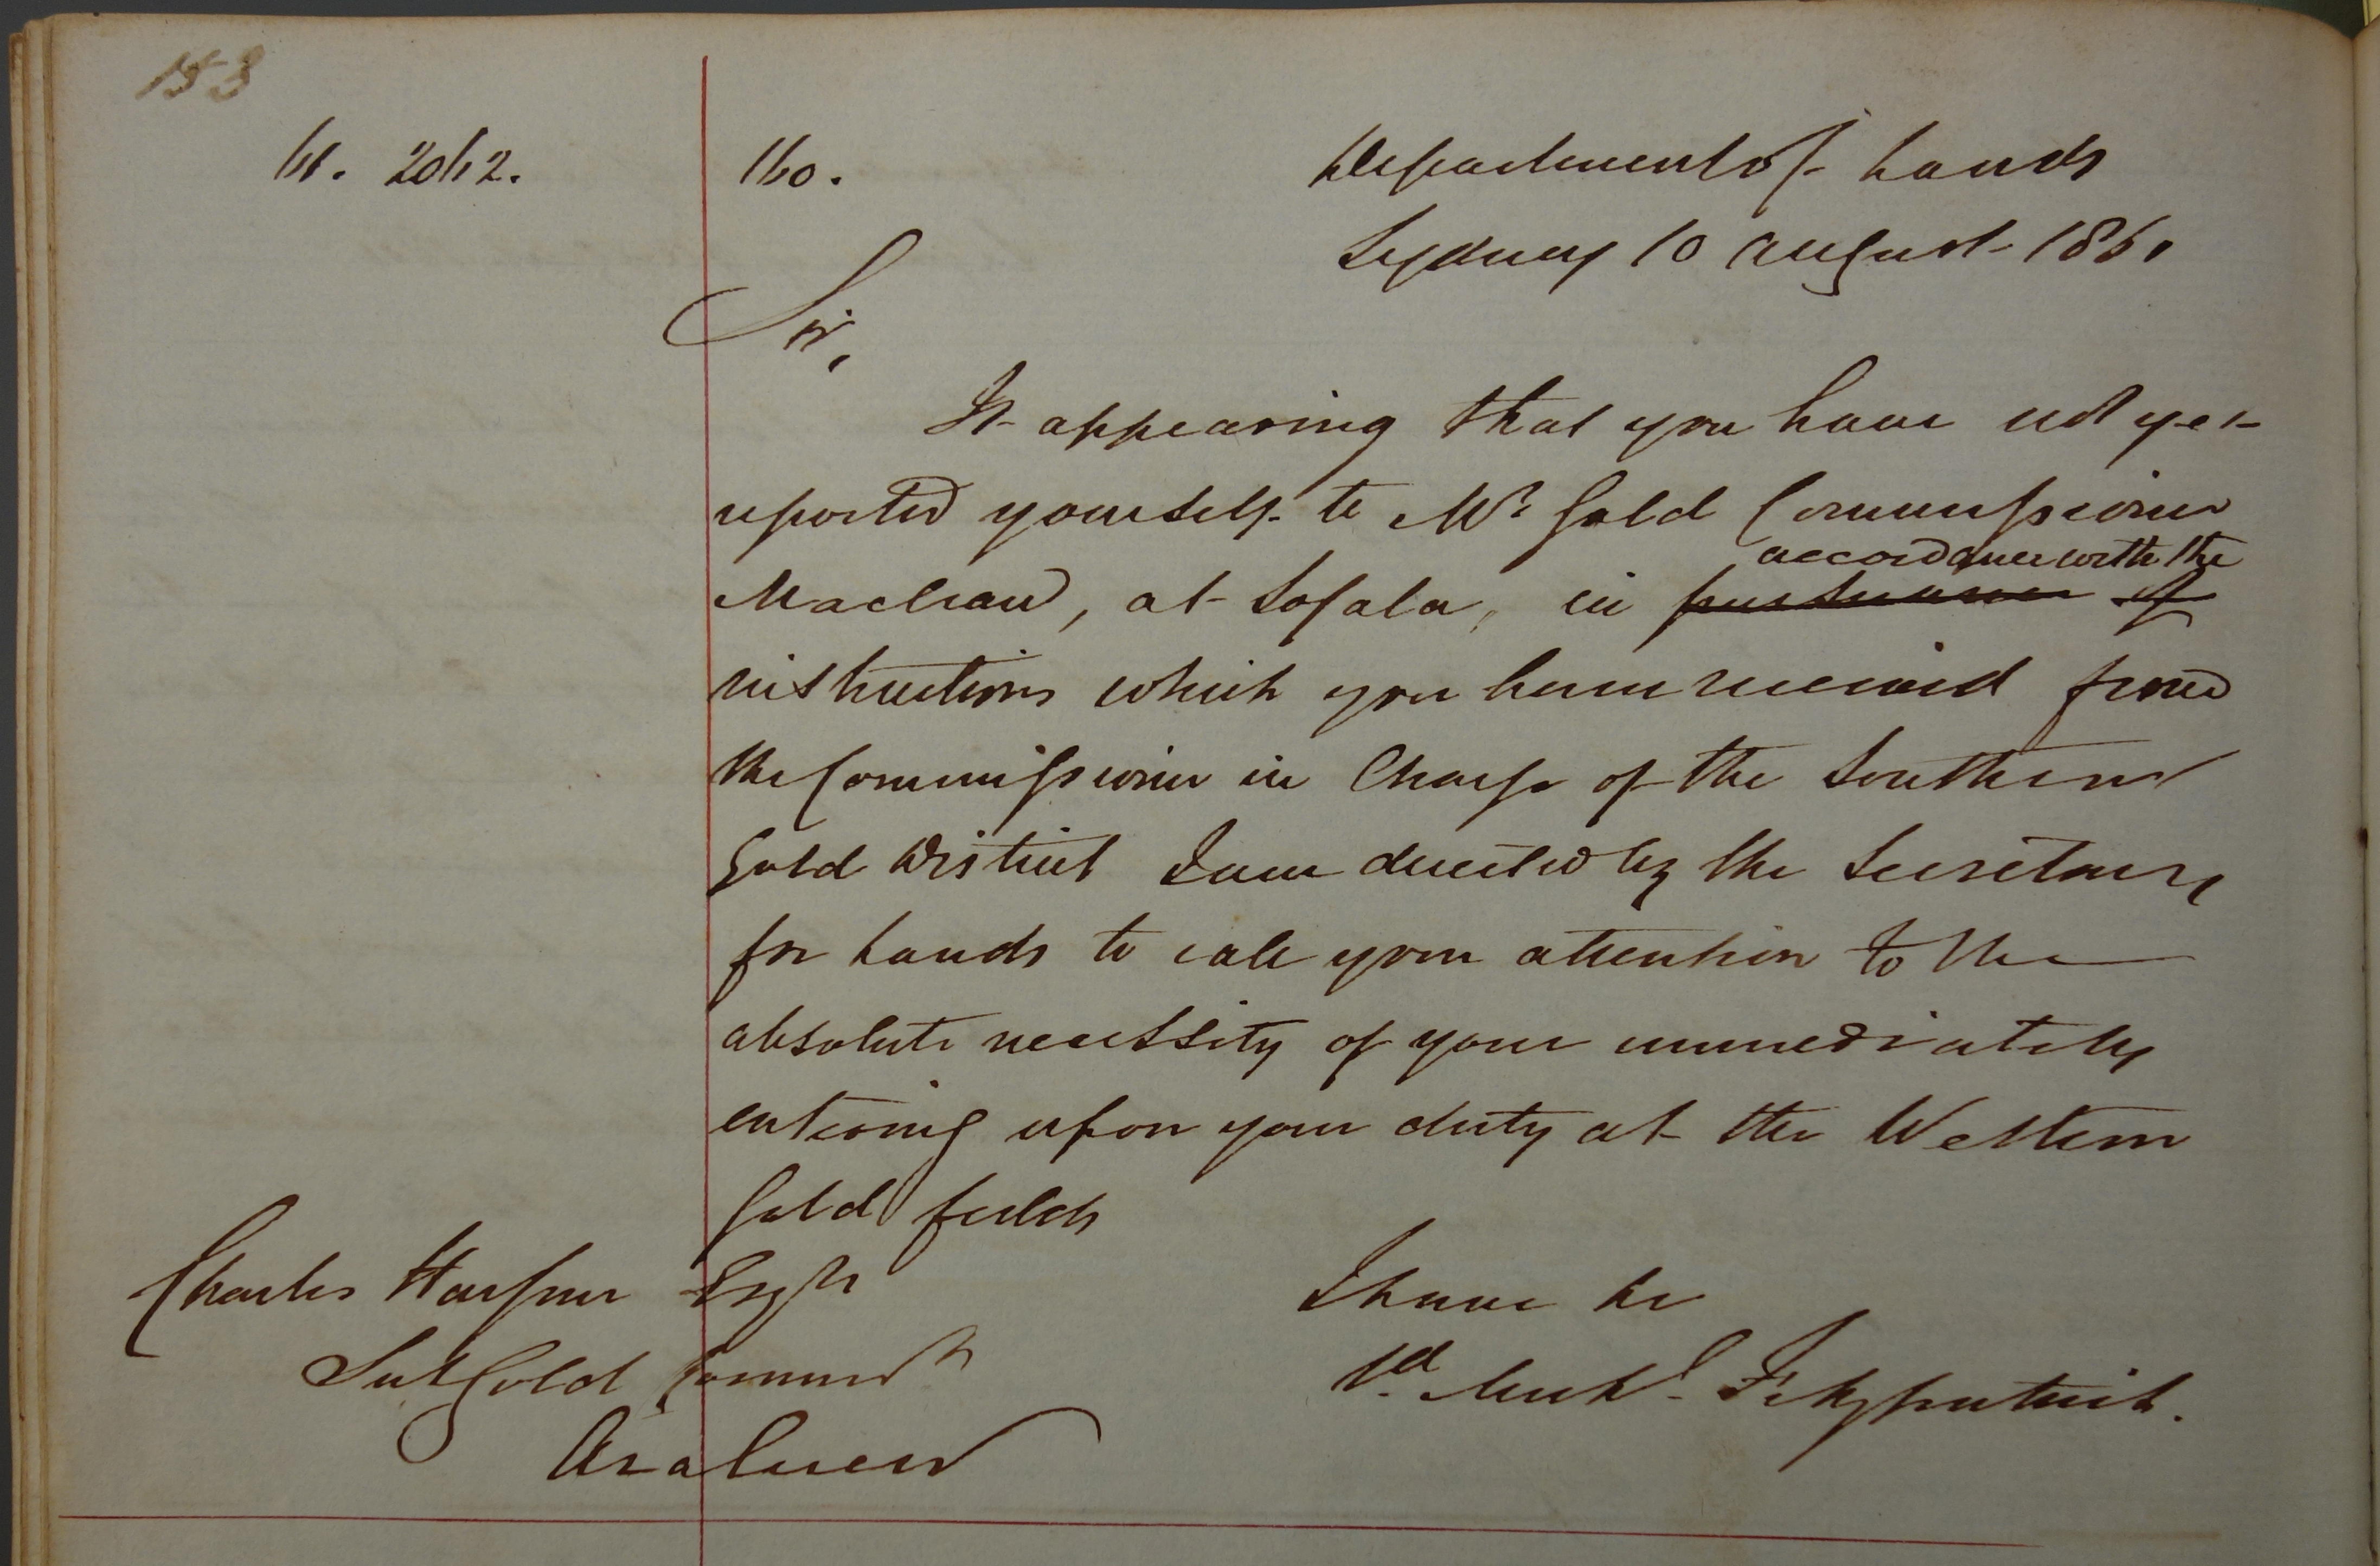 153
61. 2062.
160.
Department of Lands
Sydney 10 August 1861
Sir,
It appearing that you have not yet
reported yourself to Mr Gold Commissioner
Maclean, at Sofala, in pursuance of
accordance with the
instructions which you have received from
the Commissioner in Charge of the Southern
Gold District I am directed by the Secretary
for Lands to call your attention to the
absolute necessity of your immediately
entering upon your duty at the Western
Gold fields
Charles Harpur Esqre
Sub Gold Commr
Araluen
I have be
sd. Michl. Fitzpatrick.